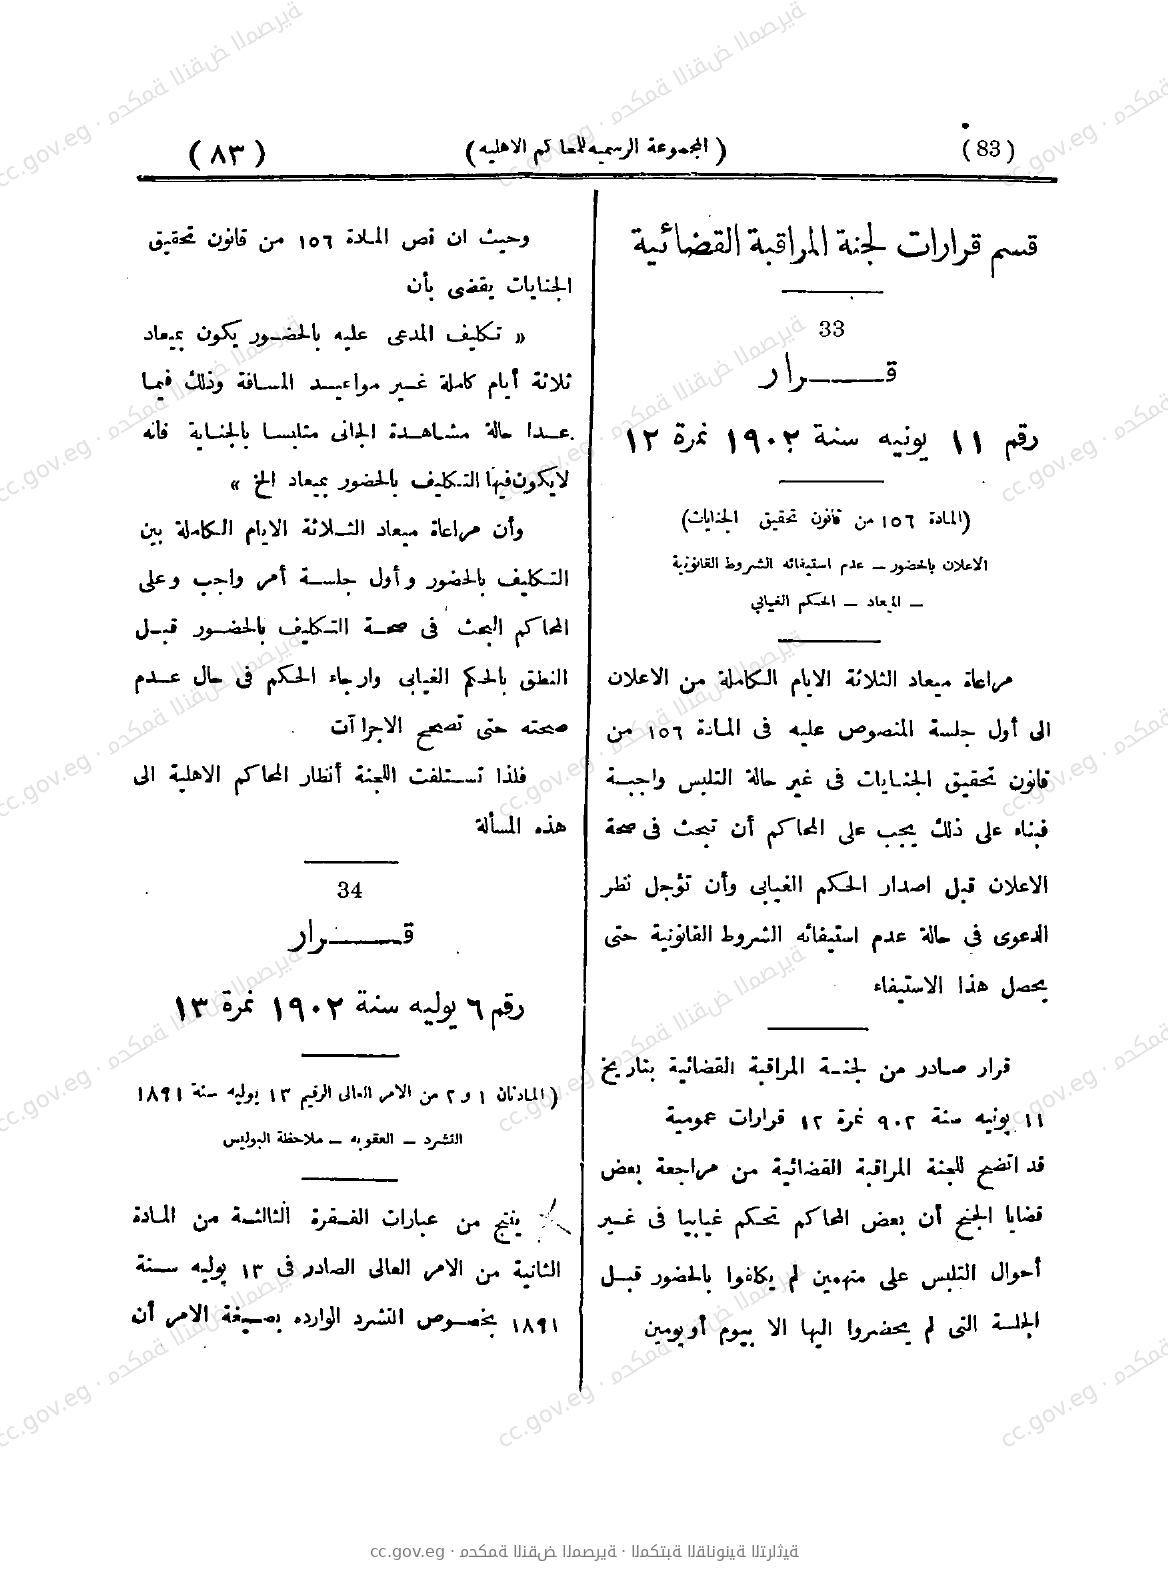 (83)
(المجموعة الرسميه للمحاكم الاهليه)
(٨٣)
قسم قرارات لجنة المراقبة القضائية
33
قــــرار
رقم ١١ يونيه سنة ١٩٠٢ نمرة ١٢
(المادة ١٥٦ من قانون تحقيق الجنايات)
الاعلان بالحضور ــ عدم استيفائه الشروط القانونية
ــ الميعاد ــ الحكم الغيابي
مراعاة ميعاد الثلاثة الايام الكاملة من الاعلان
الى أول جلسة المنصوص عليه فى المادة ١٥٦ من
قانون تحقيق الجنايات فى غير حالة التلبس واجبة
فبناء على ذلك يجب على المحاكم أن تبحث فى صحة
الاعلان قبل اصدار الحكم الغيابى وأن تؤجل نظر
الدعوى فى حالة عدم استيفائه الشروط القانونية حتى
يحصل هذا الاستيفاء
قرار صادر من لجنة المراقبة القضائية بتاريخ
١١ يونيه سنة ٩٠٢ نمرة ١٢ قرارات عمومية
قد اتضح للجنة المراقبة القضائية من مراجعة بعض
قضايا الجنح أن بعض المحاكم تحكم غيابيا فى غير
أحوال التلبس على متهمين لم يكلفوا بالحضور قبل
الجلسة التى لم يحضروا اليها الا بيوم أو يومين
وحيث ان نص المادة ١٥٦ من قانون تحقيق
الجنايات يقضى بأن
« تكليف المدعى عليه بالحضور يكون بميعاد
ثلاثة أيام كاملة غير مواعيد المسافة وذلك فيما
عدا حالة مشاهدة الجانى متلبسا بالجناية فانه
لايكون فيها التكليف بالحضور بميعاد الخ »
وأن مراعاة ميعاد الثلاثة الايام الكاملة بين
التكليف بالحضور وأول جلسة أمر واجب وعلى
المحاكم البحث فى صحة التكليف بالحضور قبل
النطق بالحكم الغيابى وارجاء الحكم فى حال عدم
صحته حتى تصحيح الاجراآت
فلذا تستلفت اللجنة أنظار المحاكم الاهلية الى
هذه المسألة
34
قــــرار
رقم ٦ يوليه سنة ١٩٠٢ نمرة ١٣
(المادتان ١ و ٢ من الامر العالى الرقيم ١٣ يوليه سنة ١٨٩١
التشرد ــ العقوبه ــ ملاحظة البوليس
ينتج من عبارات الفقرة الثالثة من المادة
الثانية من الامر العالى الصادر فى ١٣ يوليه سنة
١٨٩١ بخصوص التشرد الوارده بصيغة الامر أن
cc.gov.eg · محكمة النقض المصرية · المكتبة القانونية التراثية